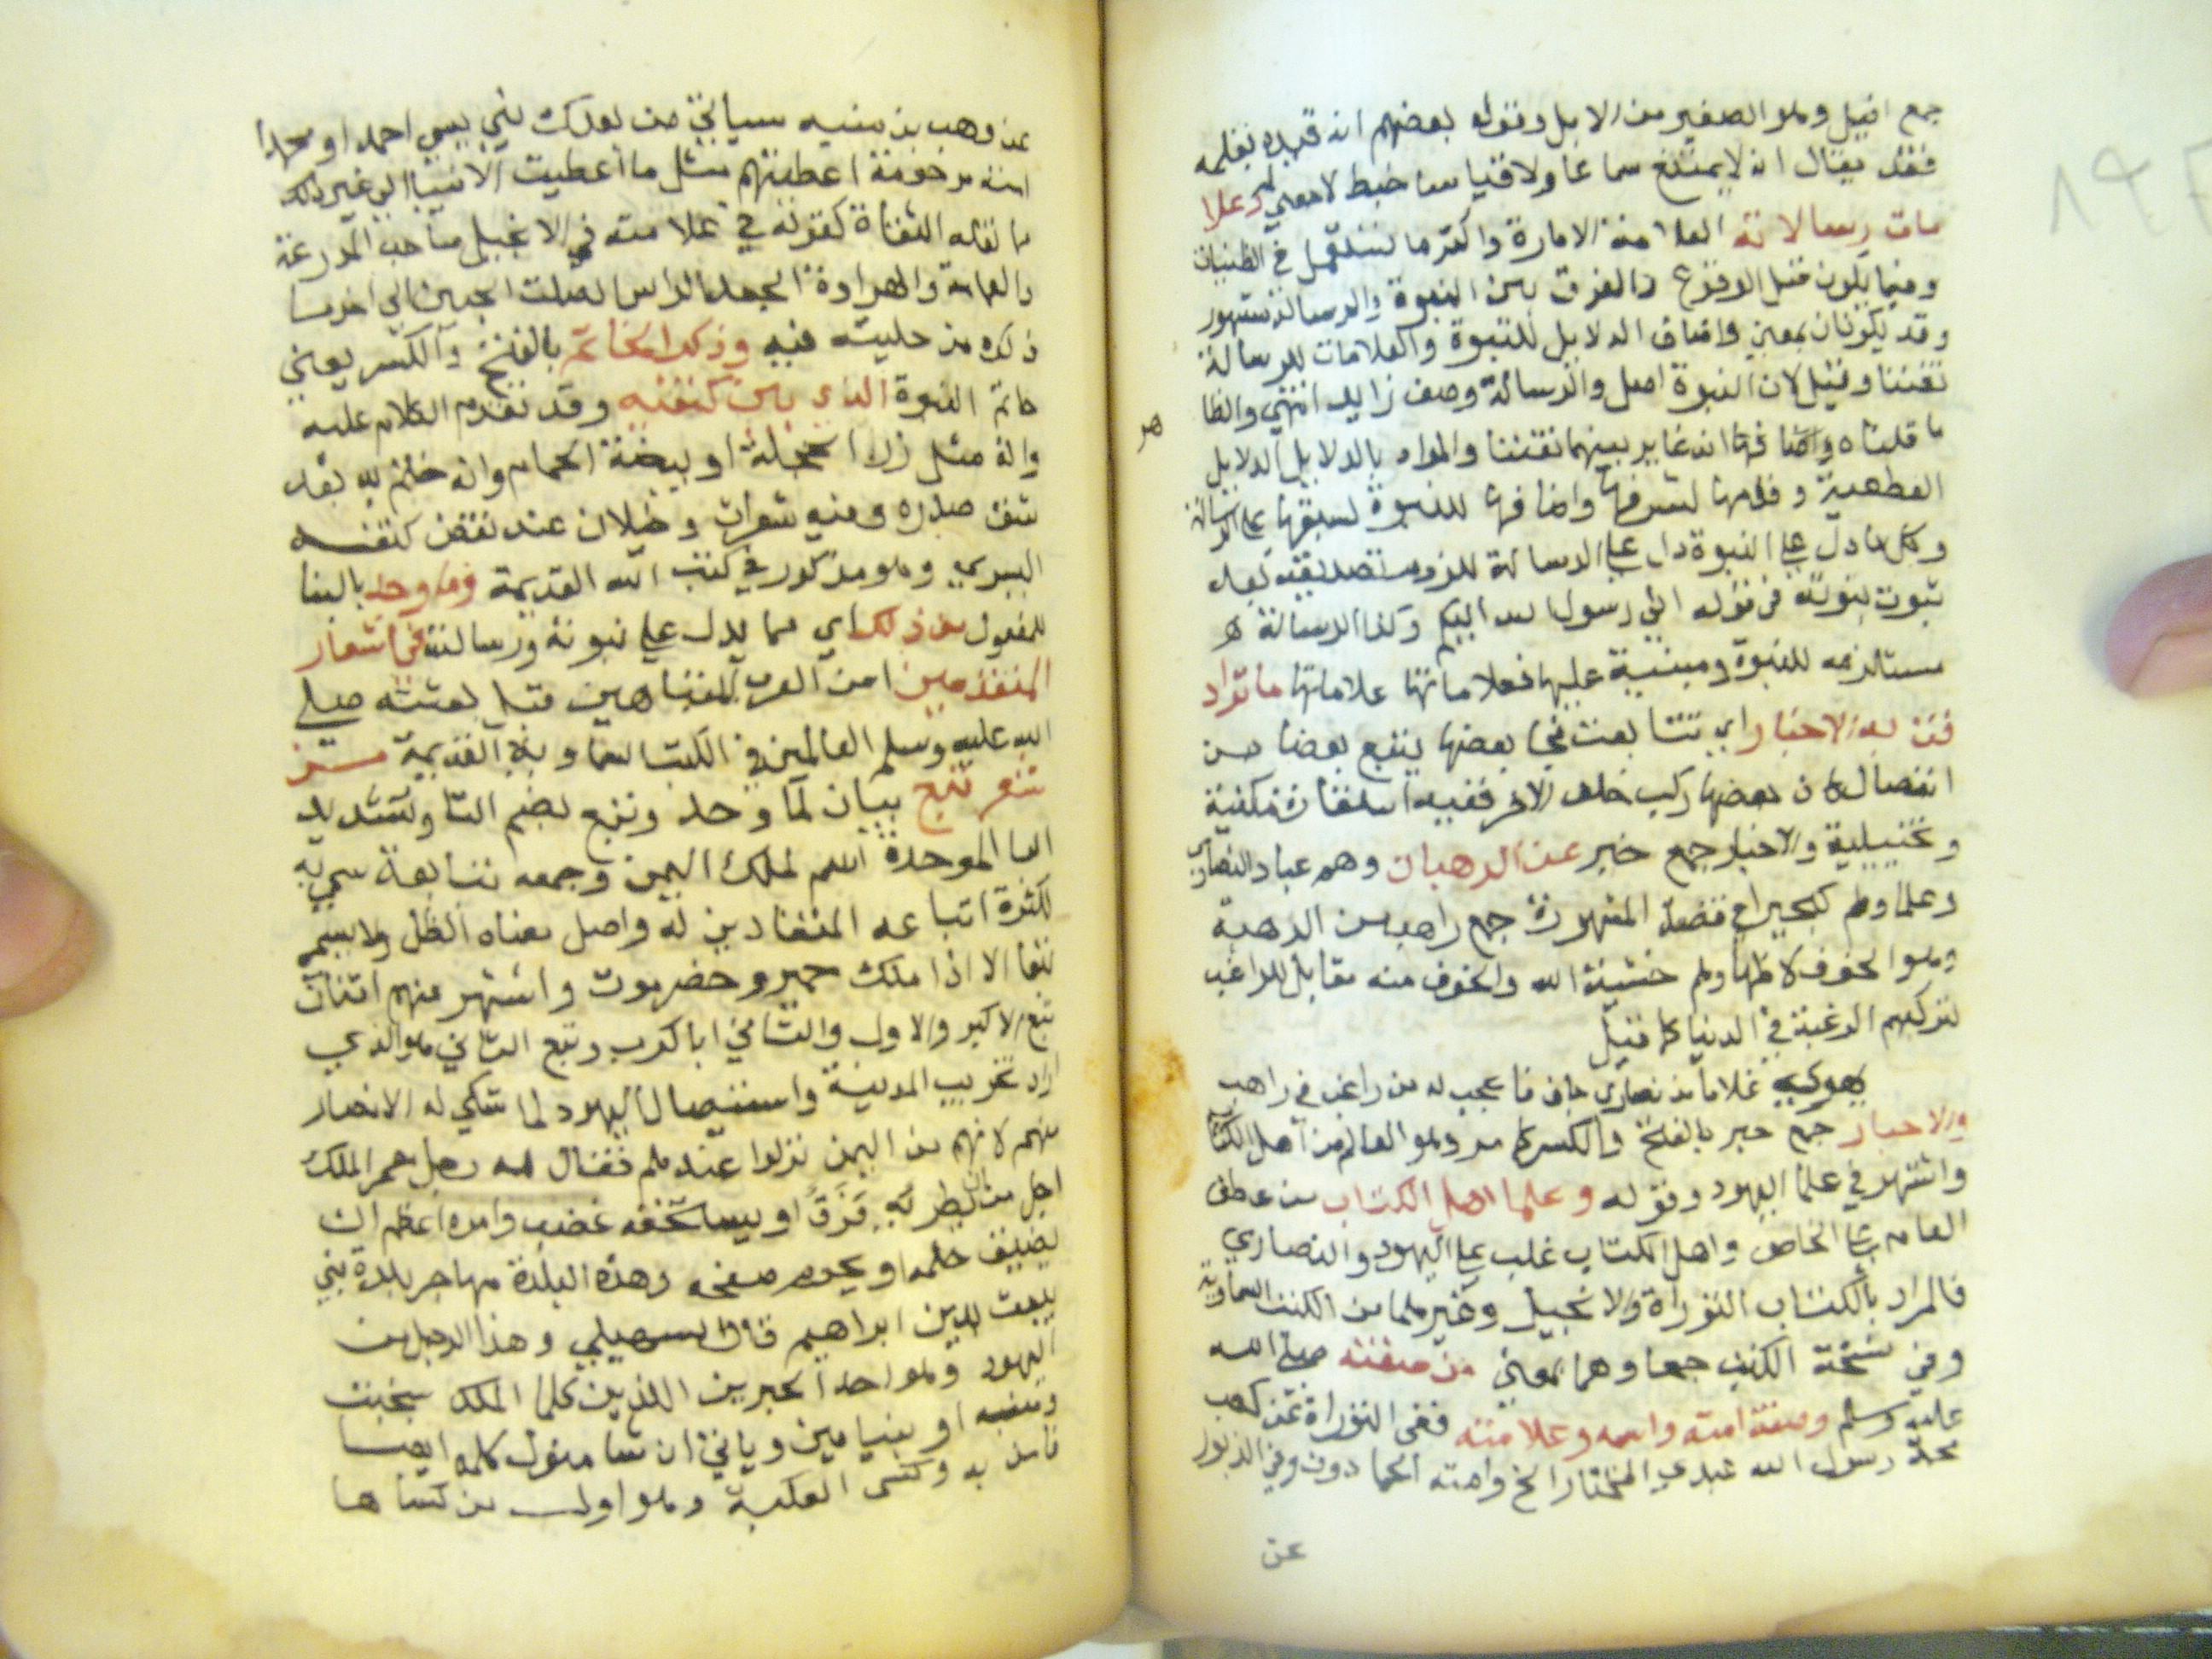 جمع افيل وهو الصغير من الابل وقول بعضهم انه
فقد يقال انه لا يمتنع سماعا ولا قياسا خبط لا معنى له وعلا
مات رسالاته العلامة الامارة واكثر ما تستعمل في الظنيات
وفيما يكون قبل الوقوع والفرق بين النبوة والرسالة مشهور
وقد يكونان بمعنى واضاف الدلايل للنبوة والعلامات للرسالة
تفننا وقيل لان النبوة اصل والرسالة وصف زايد انتهى والظا
هر
ما قلناه واضافها اند غاير بينهما تفننا والمراد بالدلايل الدلايل
القطعية وقدمها لشرفها واضافها للنبوة لسبقها على الرسالة
وكل ما دل على النبوة دل على الرسالة للزوم تصديقه بعد
ثبوت نبوته في قوله اني رسول الله اليكم وكذا الرسالة
مستلزمه للنبوة ومبنية عليها فعلاماتها علاماتها ما تراد
فت به الاخبار اي تتابعت فجا بعضها يتبع بعضا من
انفصال كان بعضها ركب خلف الاخر ففيه استعارة مكنية
وتخييلية والاخبار جمع خبر عن الرهبان وهم عباد النصارى
وعلماوهم كبحيرا في قصته المشهورة جمع راهب من الرهبة
وهو الخوف لاظهارهم خشية الله والخوف منه مقابل للراغب
لتركهم الرغبة في الدنيا كما قيل
غلاما من نصارى جاف فاعجب له من راغب في راهب
والاحبار جمع حبر بالفتح والكسر كما مر وهو العالم من اهل الكتاب
واشتهر في علما اليهود وقوله وعلما اهل الكتاب من عطف
العام على الخاص واهل الكتاب غلب على اليهود والنصارى
فالمراد بالكتاب التوراة والانجيل وغيرهما من الكتب السماوية
وفي نسخة الكتب جمعا وهما بمعنى من صفته صلى الله
عليه وسلم وصفة امته واسمه وعلامته ففي التوراة عن كعب
محمد رسول الله عبدي المختار الخ وامته الحمادون وفي الزبور
عن
عن وهب بن منبه سياتي من بعدك نبي يسمى احمد او محمدا
امته مرحومة اعطيتهم مثل ما اعطيت الانبيا الى غير ذلك
مما نقله الثقاة كقوله في علامته في الانجيل صاحب المدرعة
والعمامة والهراوة الجعد الراس الصلت الجبين الى اخر ما
ذكره من حليته فيه وذكر الخاتم بالفتح والكسر يعني
خاتم النبوة الذي بين كتفيه وقد تقدم الكلام عليه
وانه مثل زر الحجلة او بيضة الحمام وانه ختم به بعد
شق صدره وفيه شعرات وخيلان عند نغض كتفه
اليسرى وهو مذكور في كتب الله القديمة وما وجد بالبنا
للمفعول من ذلك اي مما يدل على نبوته ورسالته في اشعار
المتقدمين من العرب المتناهين قبل بعثته صلى
الله عليه وسلم العالمين في الكتب السماوية القديمة من
شعر تبع بيان لما وجد وتبع بضم التا وتشديد
البا الموحدة اسم لملك اليمن وجمعه تبابعة سمي به
لكثرة اتباعه المنقادين له واصل معناه الظل ولا يسمى
تبعا الا اذا ملك حمير وحضرموت واشتهر منهم اثنان
تبع الاكبر والاول والثاني ابا كرب وتبع الثاني هو الذي
اراد تخريب المدينة واستيصال اليهود لما شكى له الانصار
منهم لانهم من اليمن نزلوا عندهم فقال له رجل معمر الملك
اجل من ان يطير به نزق او يستخفه غضب وامره اعظم ان
يضيق حلمه او يحرم صفحه وهذه البلدة مهاجر بلدة نبي
يبعث بدين ابراهيم قال السهيلي وهذا الرجل من
اليهود وهو احد الحبرين اللذين كلما الملك سخيت
ومنبه او بنيامين وياتي ان شامول كلمه ايضا
فامن به وكسى الكعبة وهو اول من كساها